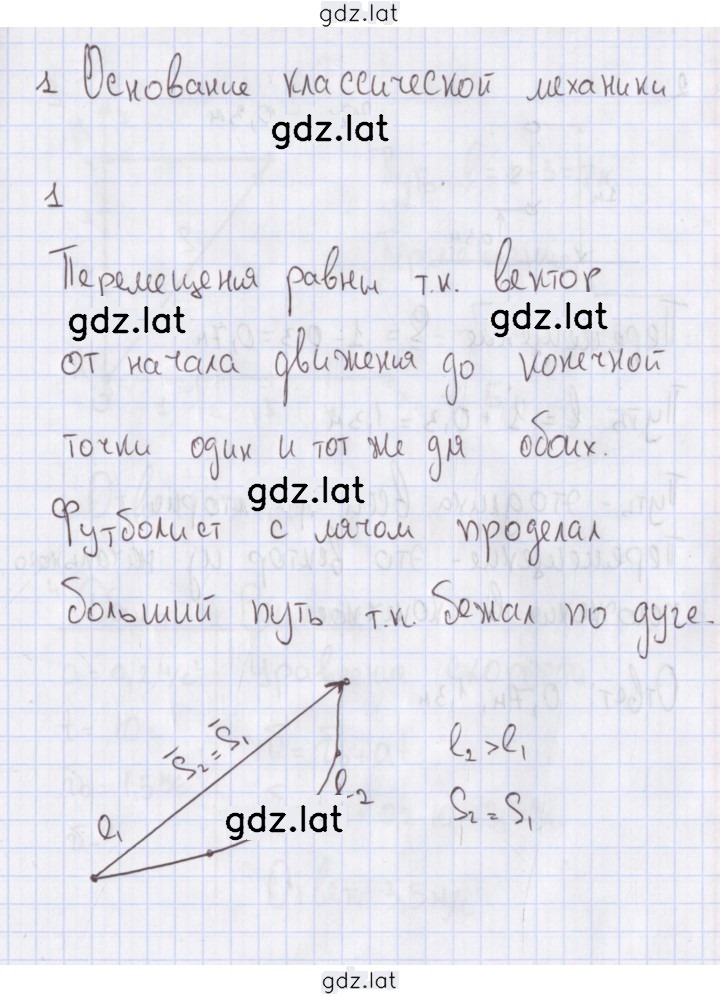 gdz.lat
1 Основание классической механики
gdz.lat
1
Перемещения равны т.к. вектор
gdz.lat gdz.lat
от начала движения до конечной
точки один и тот же для обоих.
gdz.lat
Футболист с мячом проделал
больший путь т.к. бежал по дуге.
S̄₂ = S̄₁
l₁
l₂
l₂ > l₁
S₂ = S₁
gdz.lat
gdz.lat